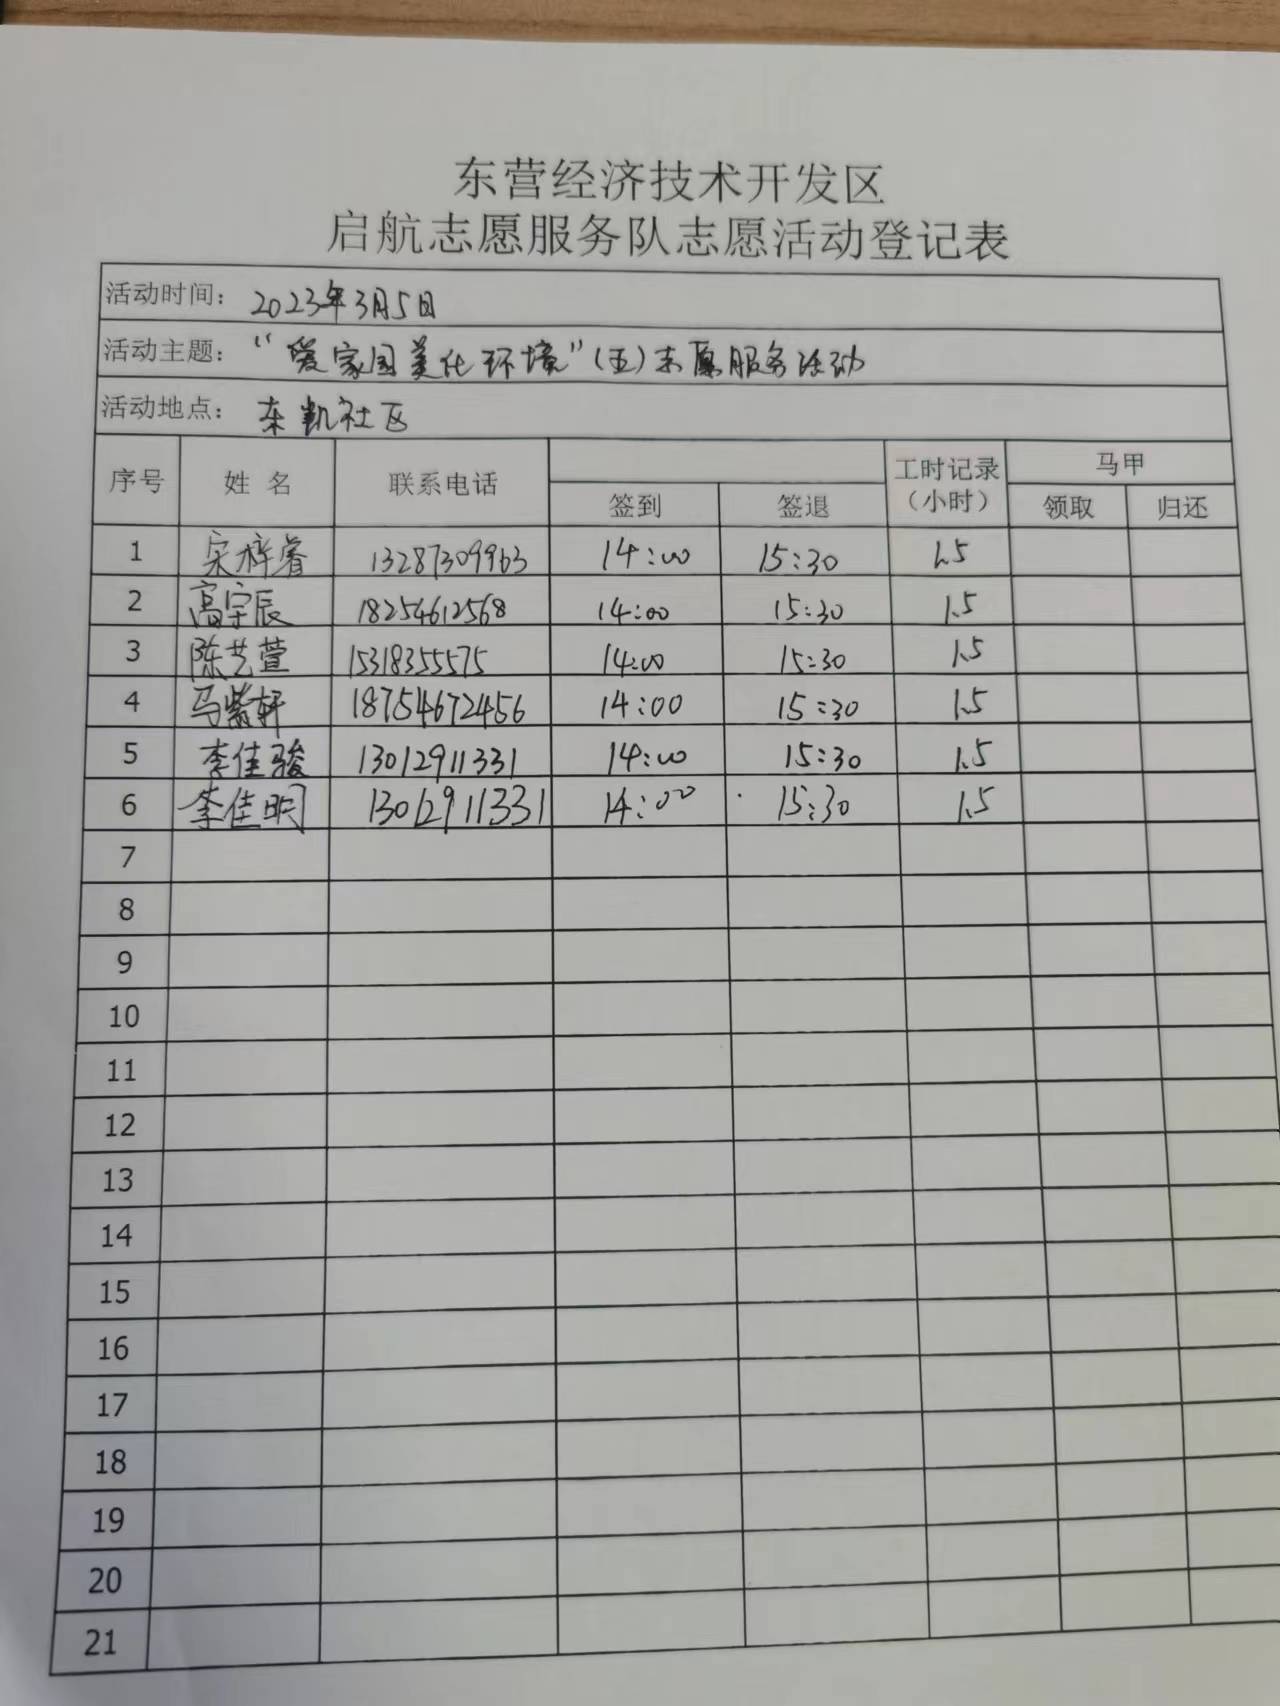 东营经济技术开发区
启航志愿服务队志愿活动登记表
活动时间: 2023年3月5日
活动主题: “爱家园美化环境”(五)志愿服务活动
活动地点: 东凯社区
序号 姓名 联系电话 签到 签退 工时记录(小时) 马甲 领取 归还
1 宋梓睿 13287309963 14:00 15:30 1.5
2 高宇辰 18254612568 14:00 15:30 1.5
3 陈艺萱 15318355575 14:00 15:30 1.5
4 马紫轩 18754672456 14:00 15:30 1.5
5 李佳骏 13012911331 14:00 15:30 1.5
6 李佳明 13012911331 14:00 15:30 1.5
7
8
9
10
11
12
13
14
15
16
17
18
19
20
21